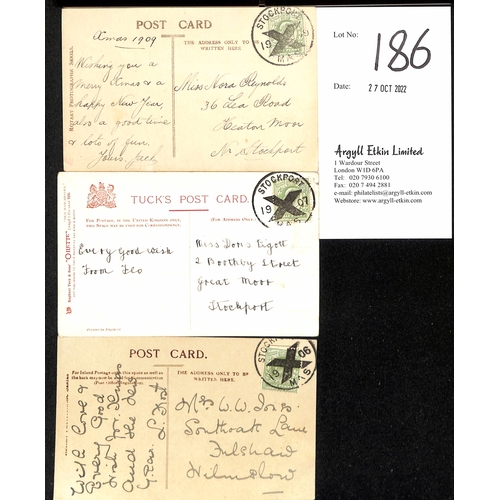 POST CARD
Xmas 1909
THE ADDRESS ONLY TO BE
WRITTEN HERE.
Wishing you a
merry Xmas & a
happy New Year,
also a good time
& lots of fun.
Yours, Jack
Miss Nora Reynolds
36 Lea Road
Heaton Moor
Nr. Stockport
STOCKPORT
19
Lot No:
186
Date:
27 OCT 2022
Argyll Etkin Limited
1 Wardour Street
London W1D 6PA
Tel: 020 7930 6100
Fax: 020 7 494 2881
e-mail: philatelists@argyll-etkin.com
Webstore: www.argyll-etkin.com
TUCK'S POST CARD.
(FOR ADDRESS ONLY.)
Every Good Wish
From Flo
Miss Doris
2 Boothby Street
Great Moor
Stockport
STOCKPORT
19 07
POST CARD.
THE ADDRESS ONLY TO BE
WRITTEN HERE.
With love &
Every Good
Wish for Xmas
and the New
Year. L.
Mrs W. W. Jones.
Southoak Lane
Fulshaw
Wilmslow
STOCKPORT
19 06